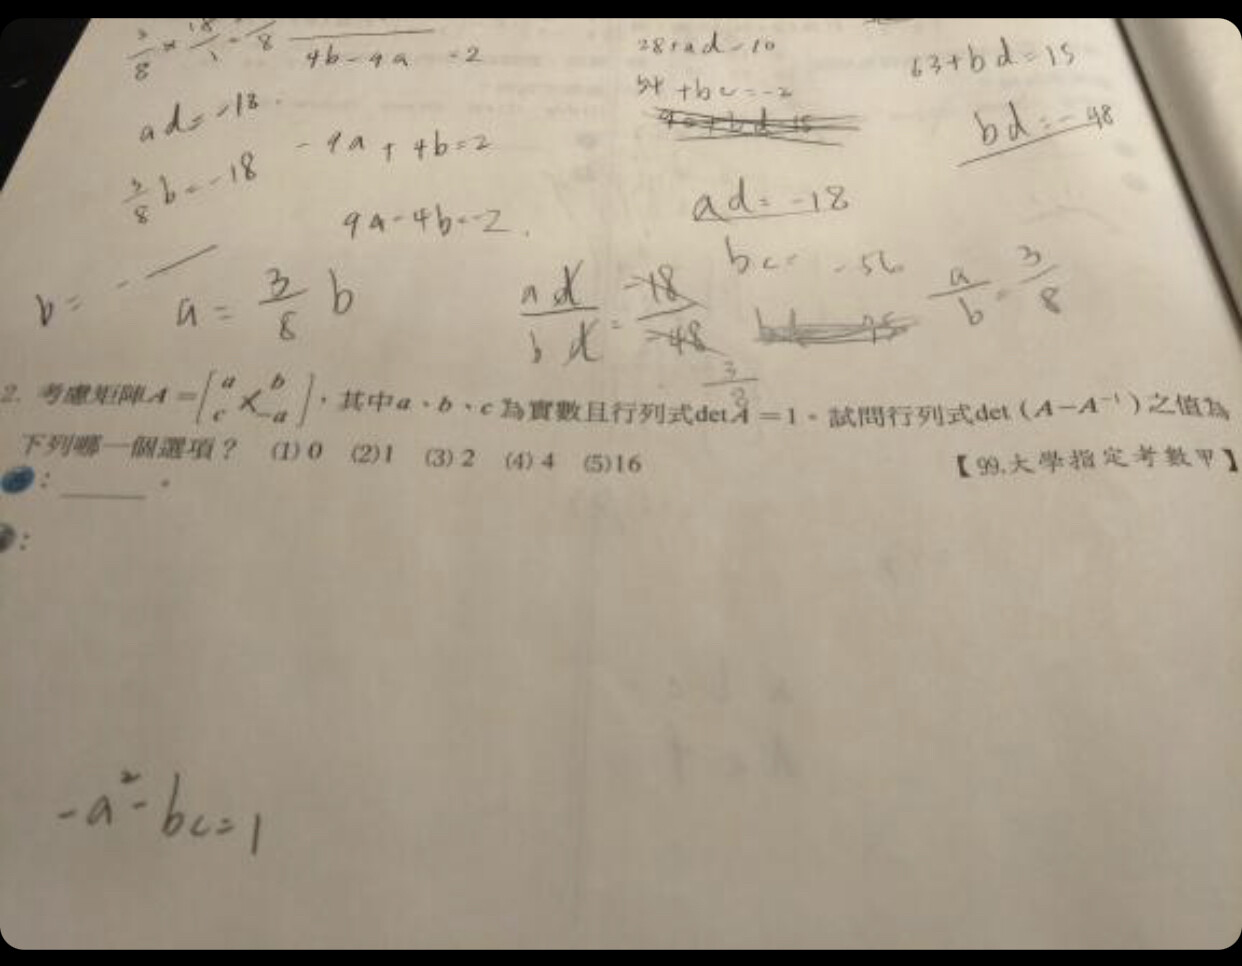 4b-9a = 2
28+ad=10
54+bc=-2
63+bd=15
bd=-48
ad=-18
-9a+4b=2
3/8 b=-18
9a-4b=-2.
ad=-18
bc= -56
b= -
a= 3/8 b
ad/bd = -18/-48
a/b = 3/8
3/8
2. 考慮矩陣A=[a b c -a],其中a、b、c為實數且行列式detA=1。試問行列式det(A-A⁻¹)之值為
下列哪一個選項? (1)0 (2)1 (3)2 (4)4 (5)16
【99.大學指定考數甲】
-a²-bc=1